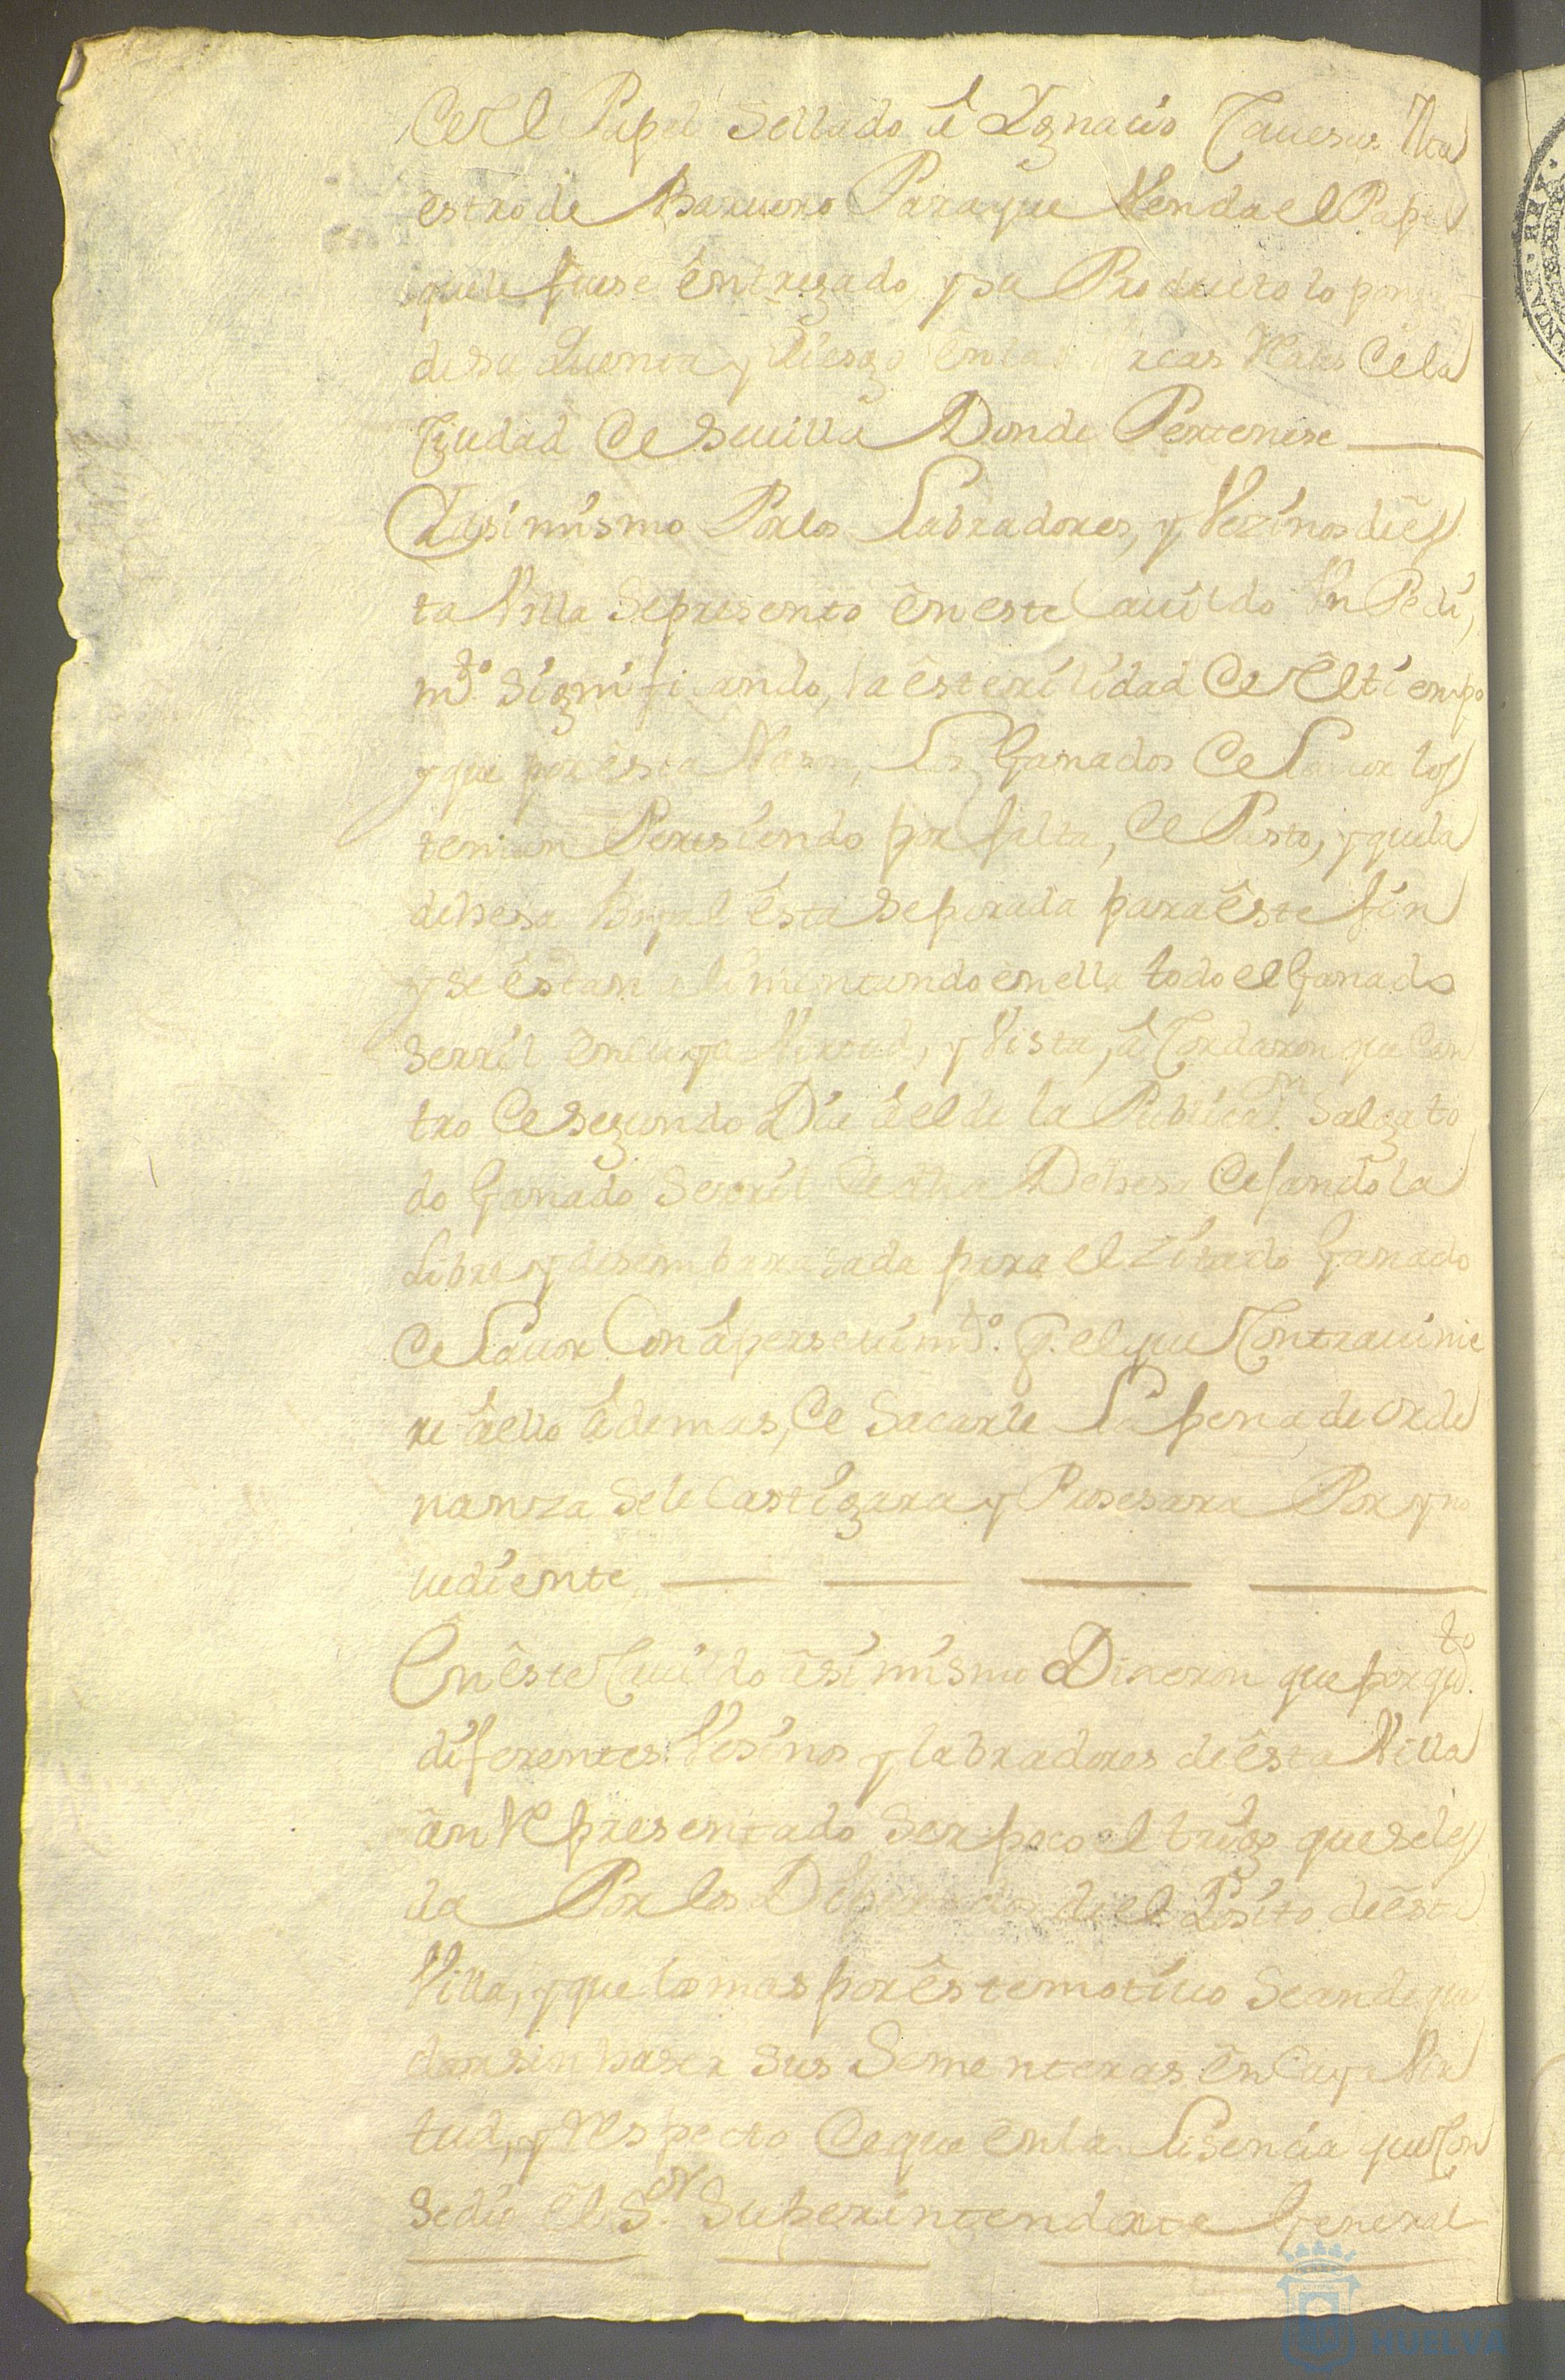 de el Papel Sellado â Ygnacio Tauesus Ma
estro de Baruero Para que Venda el Papel
que le fuese êntregado y su Producto lo ponga
de su Quenta y Riesgo ên las Arcas Rs de la
Ziudad de Seuilla Donde Pertenese
Y asimismo Por los Labradores, y Vezinos de ês
ta Villa se presento ên este Cauildo Vn Pedi,
mto. Significando, la êsterilidad de el tiempo
y que por esta Rason, Los Ganados de Lauor los
tenian Peresiendo por falta, de Pasto, y que la
dehesa Boyal êsta Separada para êste fin
y se êstan alimentando en ella todo el Ganado
Serril ên cuya Virtud, y Vista, âCordaron que den
tro de segundo Dia â el de la Publicaon. Salga to
do Ganado Serril de dha Dehesa dejandola
Libre y desembarasada para el Zitado Ganado
de Lauor Con âperseuimto. q. el que Contrauinie
re âello âdemas, de Sacarle La pena de orde
nanza Se le Castigara y Prosesara Por yno
uediente
Ên êste Cauildo âsimismo Dixeron que por qto.
diferentes Vesinos y labradores de êsta Villa
ân Representado Ser poco el trigo que se les
da Por los Diputados de el Posito de êsta
Villa, y que lo mas por êste motiuo Se an de que
dar sin haser sus Sementeras ên Cuya Vir
tud, y Respecto de que ên la Lisencia que Con
sedio êl Sor. Superintendente General
HUELVA